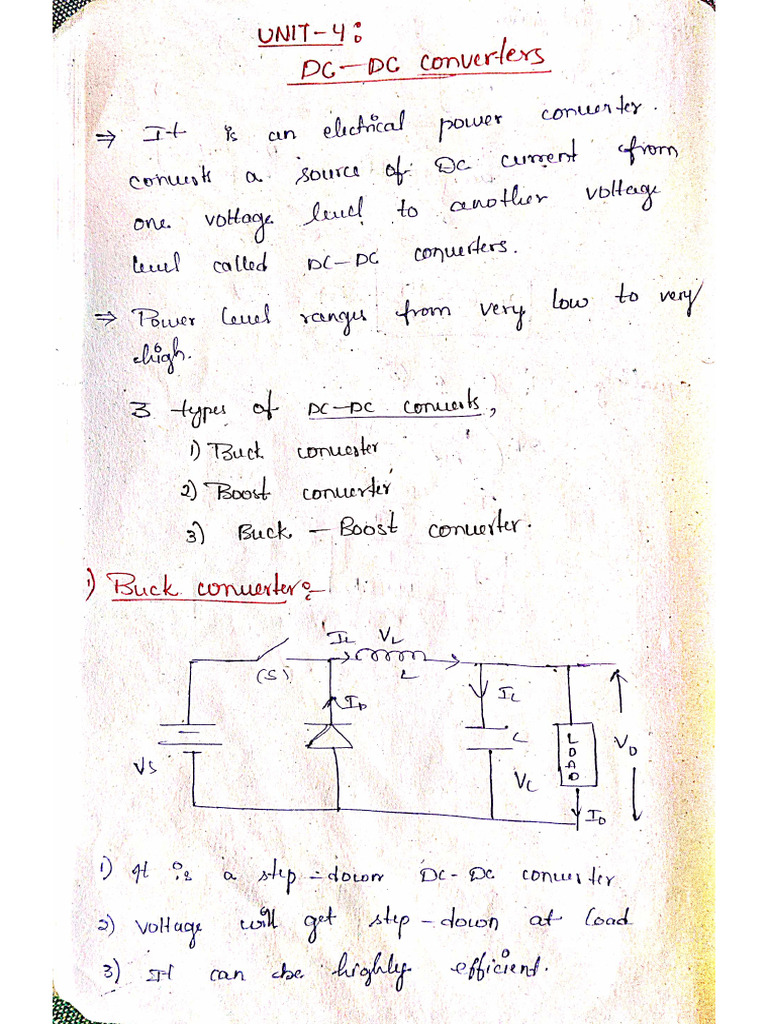 UNIT-4:
DC-DC converters
⇒ It is an electrical power converter.
converts a source of DC current from
one voltage level to another voltage
level called DC-DC converters.
⇒ Power level ranges from very low to very
high.
3 types of DC-DC converts,
1) Buck converter
2) Boost converter
3) Buck - Boost converter.
1) Buck converter:-
IL VL
(S) L
ID IC
VS C VC LOAD VO
IO
1) It is a step-down DC-DC converter
2) Voltage will get step-down at load
3) It can be highly efficient.